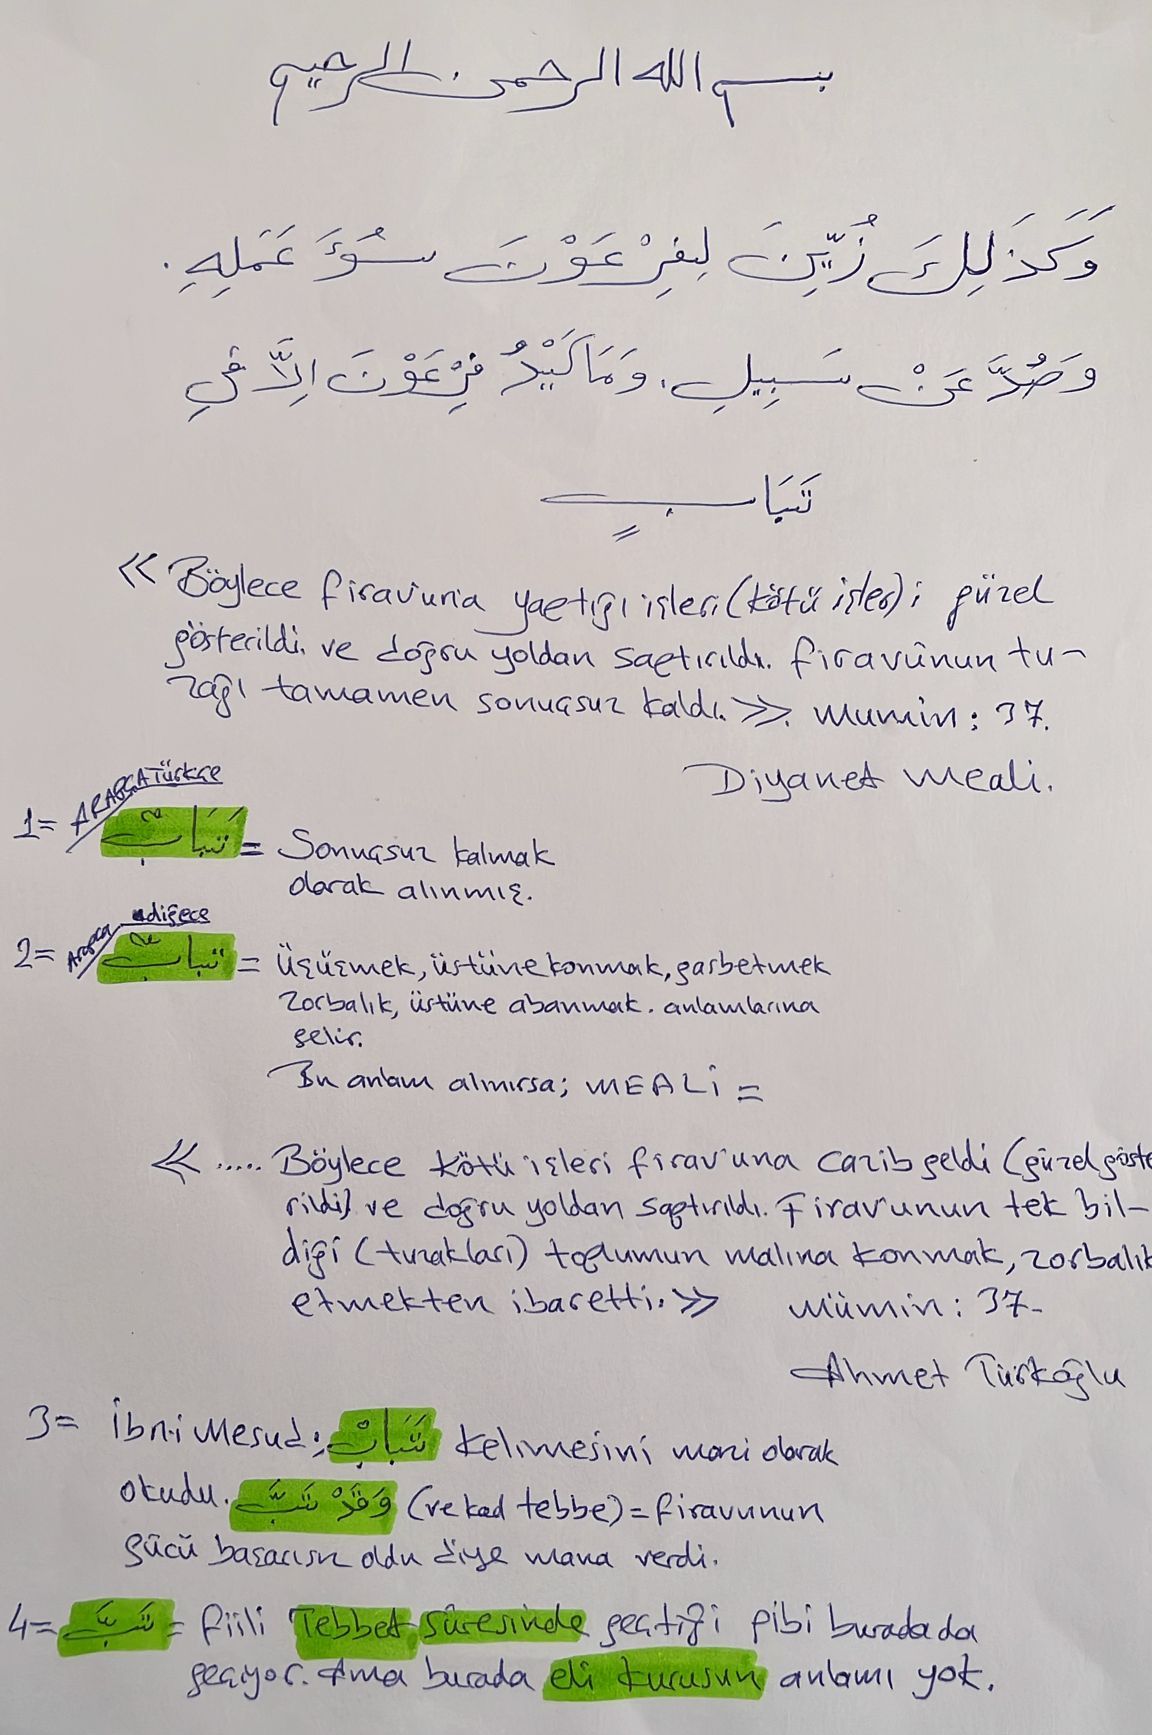 بسم الله الرحمن الرحيم
وَكَذَلِكَ زُيِّنَ لِفِرْعَوْنَ سُوءَ عَمَلِهِ .
وَصُدَّ عَنْ سَبِيلِ . وَمَا كَيْدُ فِرْعَوْنَ اِلاَّ فِي
تَبَابٍ
« Böylece firav'una yaptığı işleri (kötü işler) i güzel
gösterildi. ve doğru yoldan saptırıldı. firavûnun tu-
zağı tamamen sonuçsuz kaldı. ». Mumin : 37.
Diyanet meali.
ARAPÇA Türkçe
1= تَبَابٌ = Sonuçsuz kalmak
olarak alınmış.
Arapça adigece
2= تبابٌ = Üşüşmek, üstüne konmak, gasbetmek
zorbalık, üstüne abanmak. anlamlarına
gelir.
Bu anlam alınırsa; MEALİ =
« ..... Böylece kötü işleri firav'una cazib geldi (güzel göste
rildi) ve doğru yoldan saptırıldı. Firav'unun tek bil-
diği (tuzakları) toplumun malına konmak, zorbalık
etmekten ibaretti. » Mümin : 37-
Ahmet Türkoğlu
3= İbn-i Mesud; تَبَابٌ kelimesini mazi olarak
okudu. وَقَدْ تَبَّ (ve kad tebbe) = firavunun
gücü başarısız oldu diye mana verdi.
4= تَبَّ = fiili Tebbet sûresinde geçtiği gibi burada da
geçiyor. Ama burada eli kurusun anlamı yok.